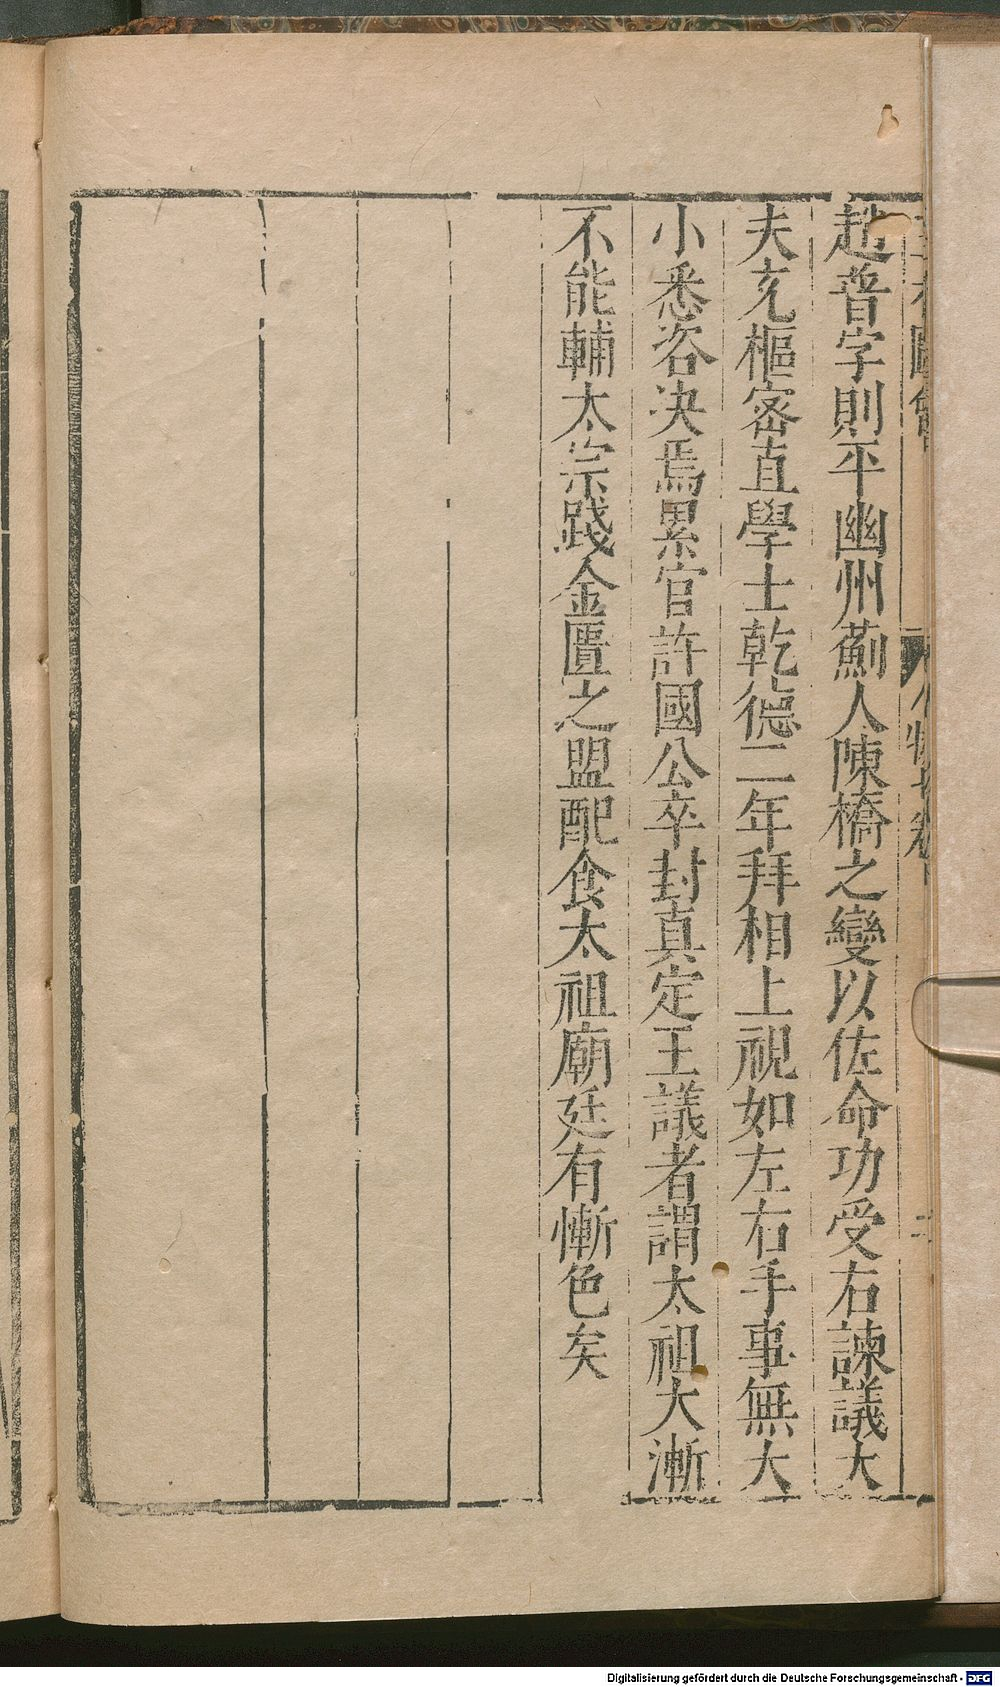 趙普字則平幽州薊人陳橋之變以佐命功受右諫議大
夫充樞密直學士乾德二年拜相上視如左右手事無大
小悉咨决焉累官許國公卒封真定王議者謂太祖大漸
不能輔太宗踐金匱之盟配食太祖廟廷有慚色矣
Digitalisierung gefördert durch die Deutsche Forschungsgemeinschaft - DFG